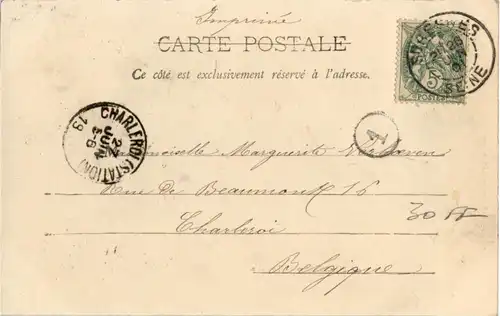 Imprimé
CARTE POSTALE
Ce côté est exclusivement réservé à l'adresse.
SEINE
5
POSTES
CHARLEROI (STATION)
27
JUIN
5-6
19
1
Mademoiselle Marguerite
Rue de Beaumont 16
Charleroi
30 FF
Belgique